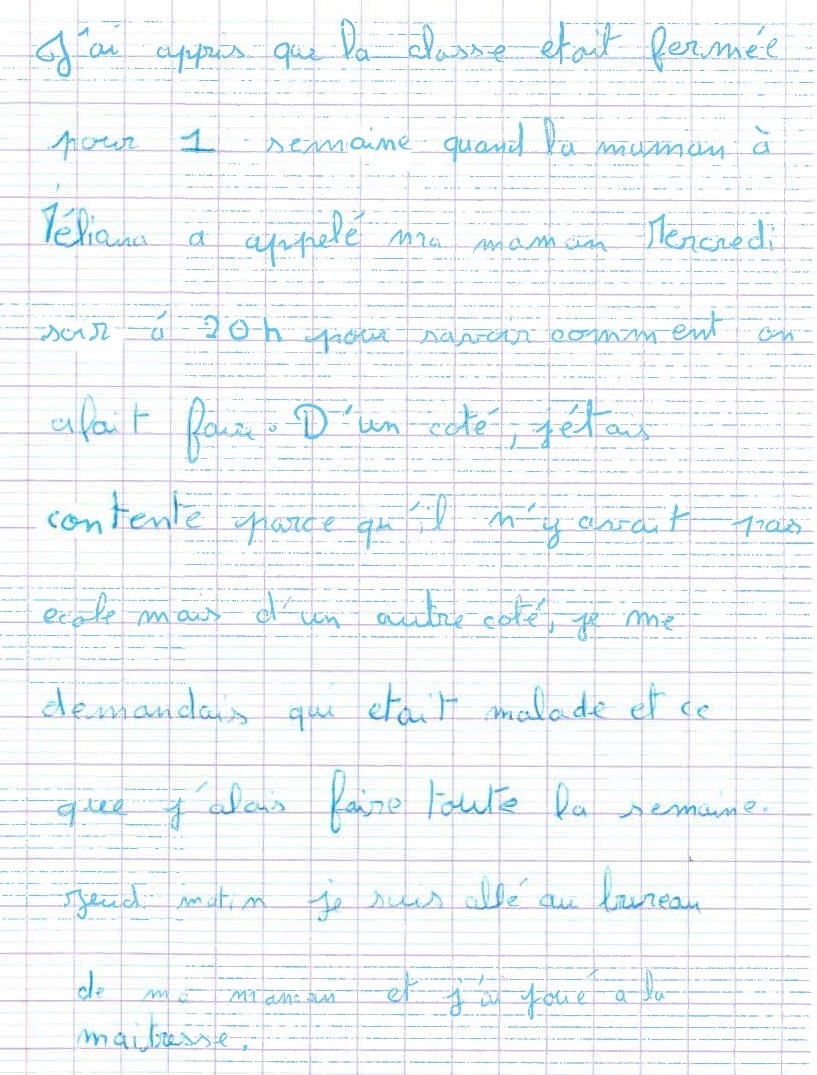 J'ai appris que la classe etait fermée
pour 1 semaine quand la maman à
Téliana a appelé ma maman Mercredi
soir à 20h pour savoir comment on
alait faire. D'un coté, j'étais
contente parce qu'il n'y avait pas
ecole mais d'un autre coté, je me
demandais qui etait malade et ce
que j'alais faire toute la semaine.
jeudi matin je suis allé au bureau
de ma maman et j'ai joué a la
maitresse.